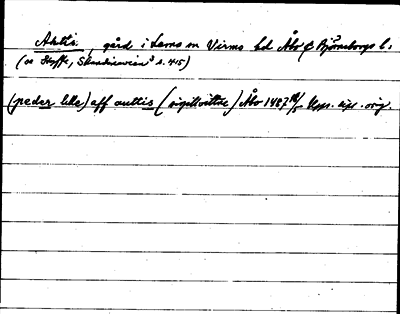 Aktis, gård i Lems sn Virmo hd Åbo & Björneborgs l.
(se Styffe, Skandinavien³ s. 415)
(peder lille) aff auttis (sigillvittne) Åbo 1487 Upps. dipl. orig.